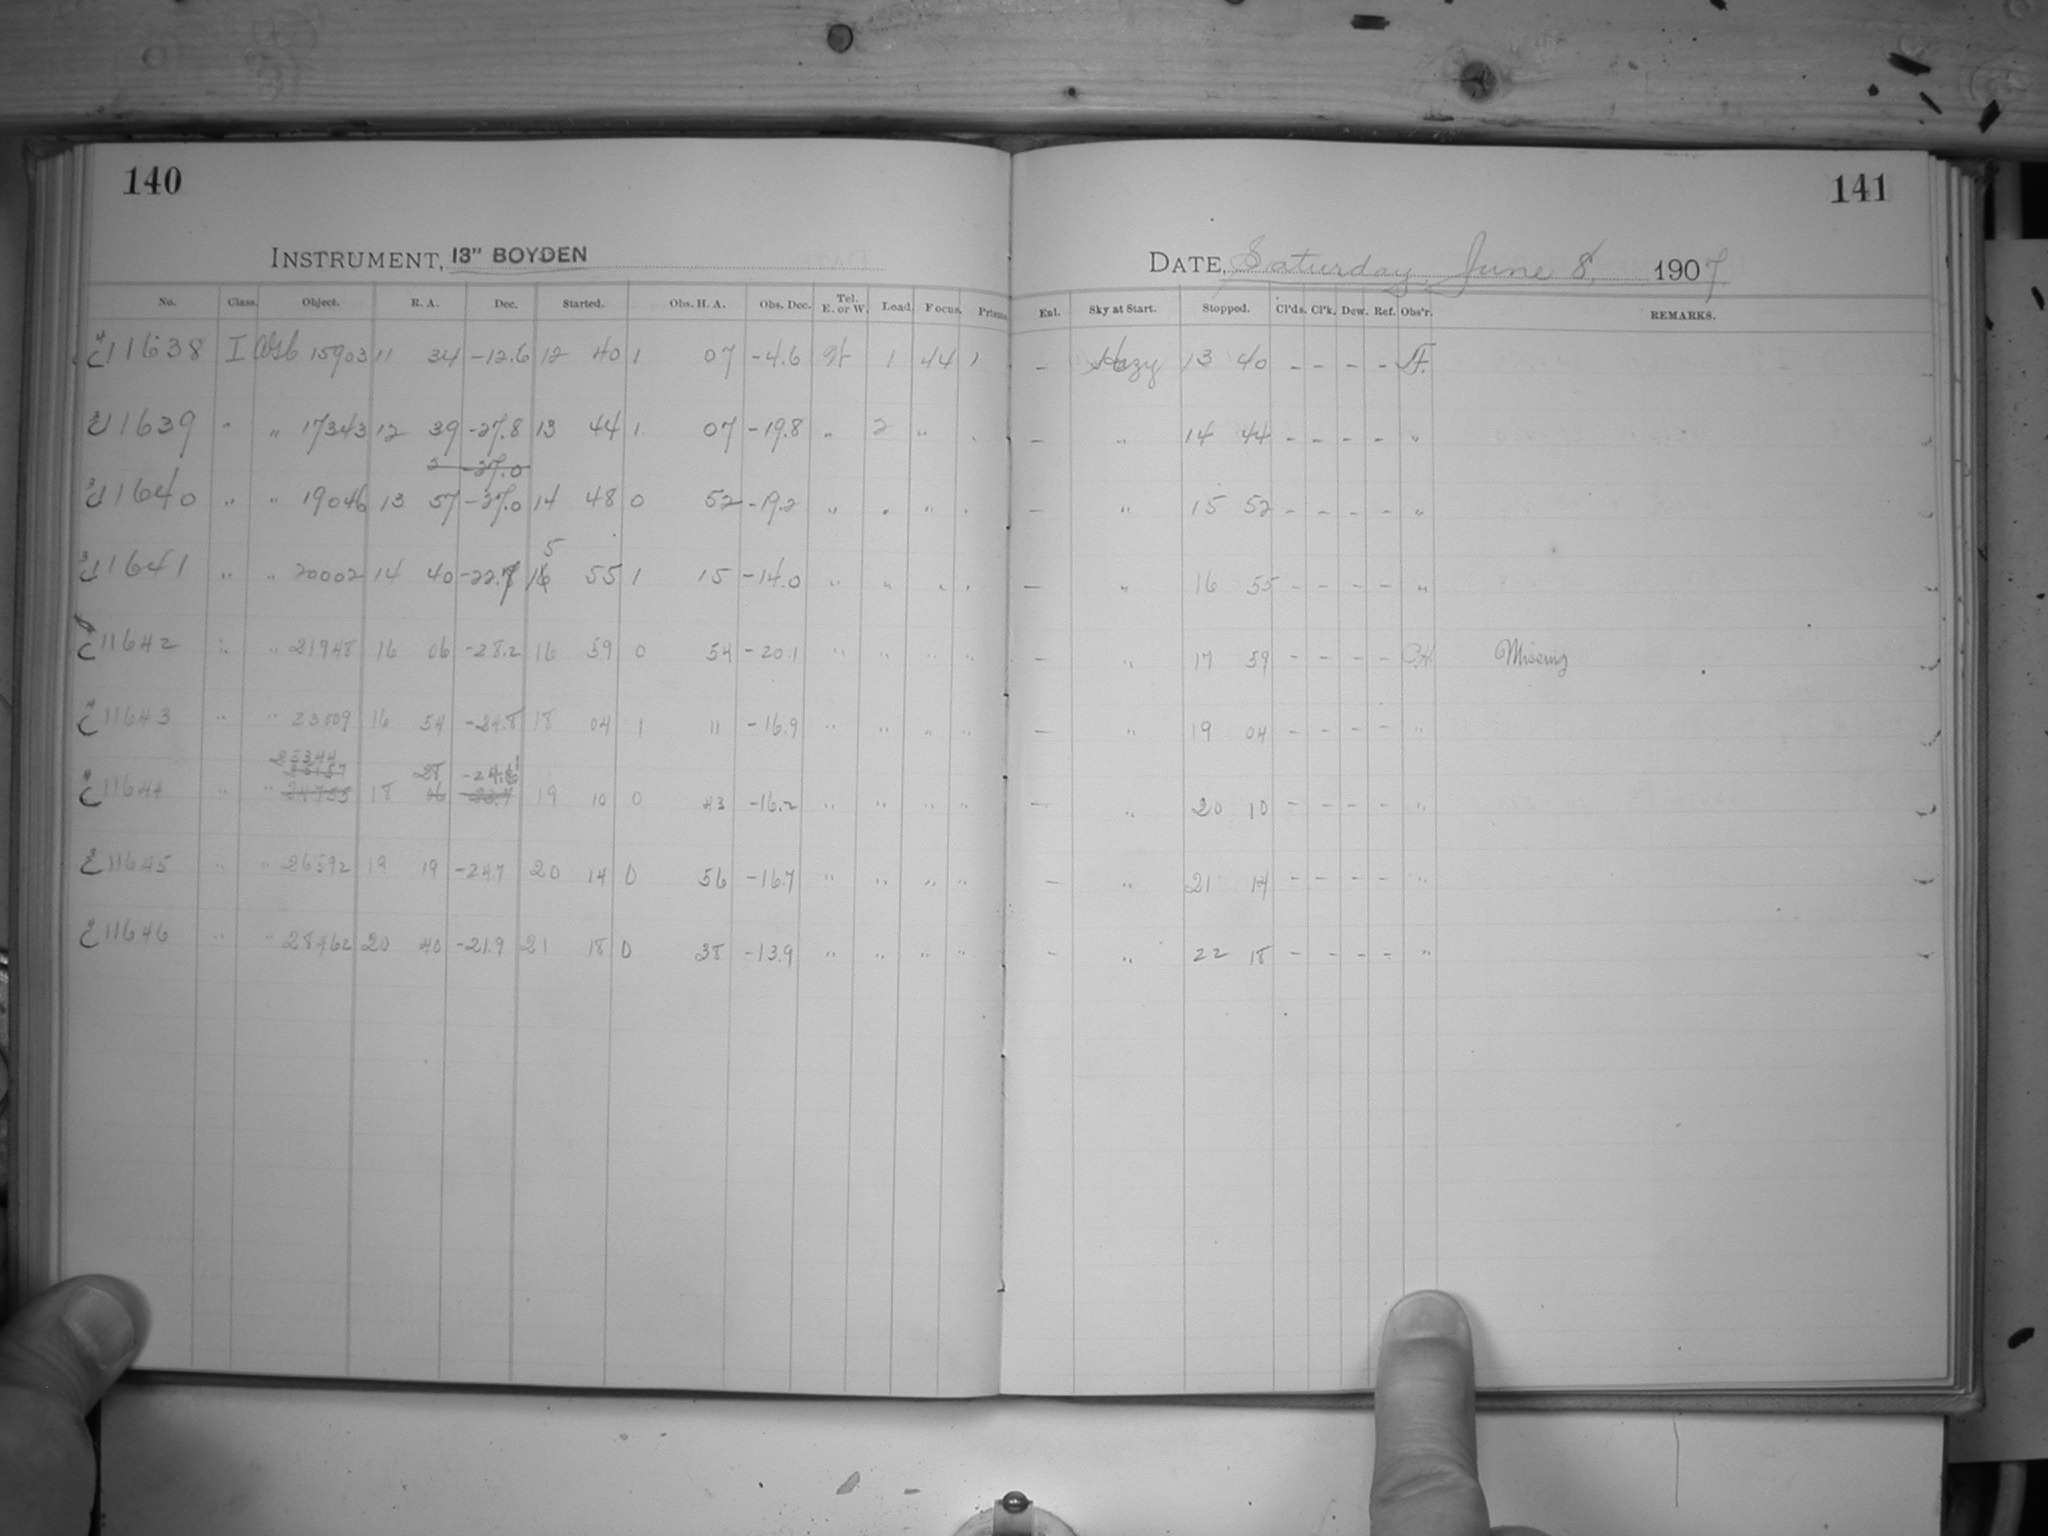 140
141
INSTRUMENT, 13" BOYDEN
DATE, Saturday June 8, 1907.
No. Class. Object. R. A. Dec. Started. Obs. H. A. Obs. Dec. Tel. E. or W. Load. Focus. Prisms. Enl. Sky at Start. Stopped. Cl'ds. Cl'k. Dew. Ref. Obs'r. REMARKS.
11638 I 15903 11 34 -12.6 12 40 1 07 -4.6 1 44 1 – Hazy 13 40 – – – –
11639 " " 17343 12 39 -27.8 13 44 1 07 -19.8 " 2 " – " 14 44 – – – – "
2 -37.0
11640 " " 19046 13 57 -27.0 14 48 0 52 -19.2 " " " " – " 15 52 – – – – "
5
11641 " " 20002 14 40 -22.7 16 55 1 15 -14.0 " " " " – " 16 55 – – – – "
11642 " " 21948 16 06 -28.2 16 59 0 54 -20.1 " " " " – " 17 59 – – – – Missing
11643 " " 23009 16 54 -24.8 18 04 1 11 -16.9 " " " " – " 19 04 – – – – "
25344
28
11644 " " 24755 18 06 19 10 0 43 -16.2 " " " " – " 20 10 – – – – "
11645 " " 26592 19 19 -24.7 20 14 0 56 -16.7 " " " " – " 21 14 – – – – "
11646 " " 28462 20 40 -21.9 21 18 0 38 -13.9 " " " " – " 22 18 – – – – "